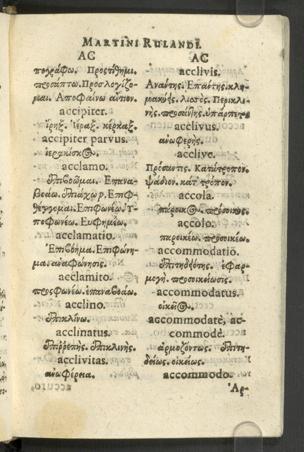 MARTINI RULANDI
AC
πογράφω. Προστίθημι.
προσάπτω. Προσλογίζο-
μαι. Ἀποφαίνω αἴτιον.
accipiter.
ἴρηξ. ἱέραξ. κέρκαξ.
accipiter parvus.
ἱερακίσκος.
acclamo.
Ἐπιβοῶμαι. Ἐπανα-
βοάω. Ἐπιάχω. Ἐπιφ-
θέγγομαι. Ἐπιφωνέω. Ὑ-
ποφωνέω. Εὐφημέω.
acclamatio.
Ἐπιβόημα. Ἐπιφώνη-
μα. ἀναφώνησις.
acclamito.
προσφωνέω. ἐπαναβοάω.
acclino.
ἐπικλίνω.
acclinatus.
ἐπιρρεπής. ἐπικλινής.
acclivitas.
ἀνωφέρεια.
AC
acclivis.
Ἀνάντης. Ἐπάντης. κλι-
acclivus.
ἀνωφερής.
acclive.
Πρόσαντες. Κατάτροπον.
accola.
πάροικος. πρόσοικος
accolo.
παροικέω. προσοικέω.
accommodatio.
Ἐπιτηδειότης. ἐφαρ-
μογή. προσοικείωσις.
accommodatus.
οἰκεῖος.
accommodatè, ac-
commodè.
ἁρμοζόντως. Ἐπιτη-
δείως. οἰκείως.
accommodo.
Ἁρ-